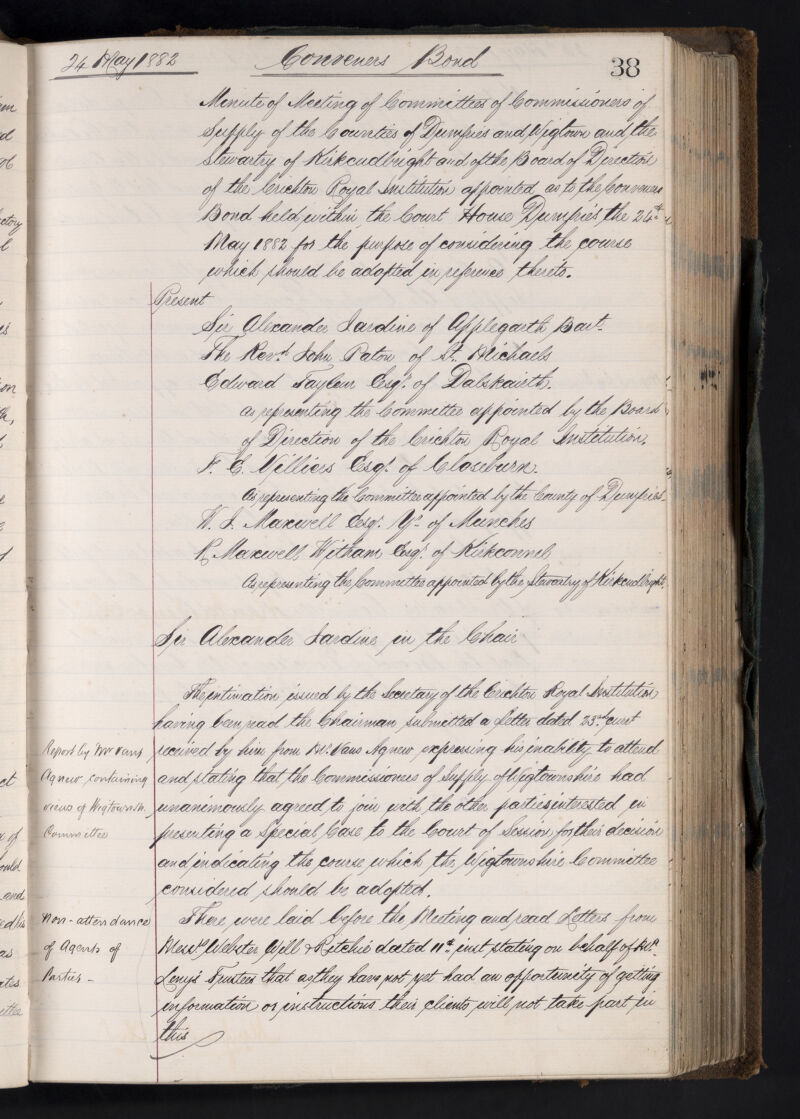 24 May 1882
Conveners Bond
38
Minute of Meeting of Committees of Commissioners of
Supply of the Counties of Dumfries and Wigtown and the
Stewartry of Kirkcudbright and of the Board of Direction
of the Crichton Royal Institution appointed as to the Conveners
Bond held within the Court House Dumfries the 24th
May 1882 for the purpose of considering the course
which should be adopted in reference thereto.
Present
Sir Alexander Jardine of Applegarth, Bart.
The Revd. John Paton of St. Michaels
Edward Taylour Esqr. of Dalskairth.
as representing the Committee appointed by the Board
of Direction of the Crichton Royal Institution.
F. E. Villiers Esqr. of Closeburn.
As representing the Committee appointed by the County of Dumfries
W. J. Maxwell Esqr. Yr. of Munches
R Maxwell Witham Esqr. of Kirkconnell
As representing the Committee appointed by the Stewartry of Kirkcudbright.
Sir Alexander Jardine in the Chair
The intimation issued by the Secretary of the Crichton Royal Institution
having been read the Chairman submitted a letter dated 23rd curt
Report by Mr Vans
received by him from Mr. Vans Agnew expressing his inability to attend
Agnew containing
and stating that the Commissioners of Supply of Wigtownshire had
views of Wigtownsh.
unanimously agreed to join with the other parties interested in
Committee
presenting a Special Case to the Court of Session for their decision
and indicating the course which the Wigtownshire Committee
considered should be adopted.
Non-attendance
There were laid before the Meeting and read Letters from
of Agents of
Messrs. Webster Will & Ritchie dated 11th inst stating on behalf of
Parties -
Trustees that as they have not yet had an opportunity of getting
information or instructions their clients will not take part in
this